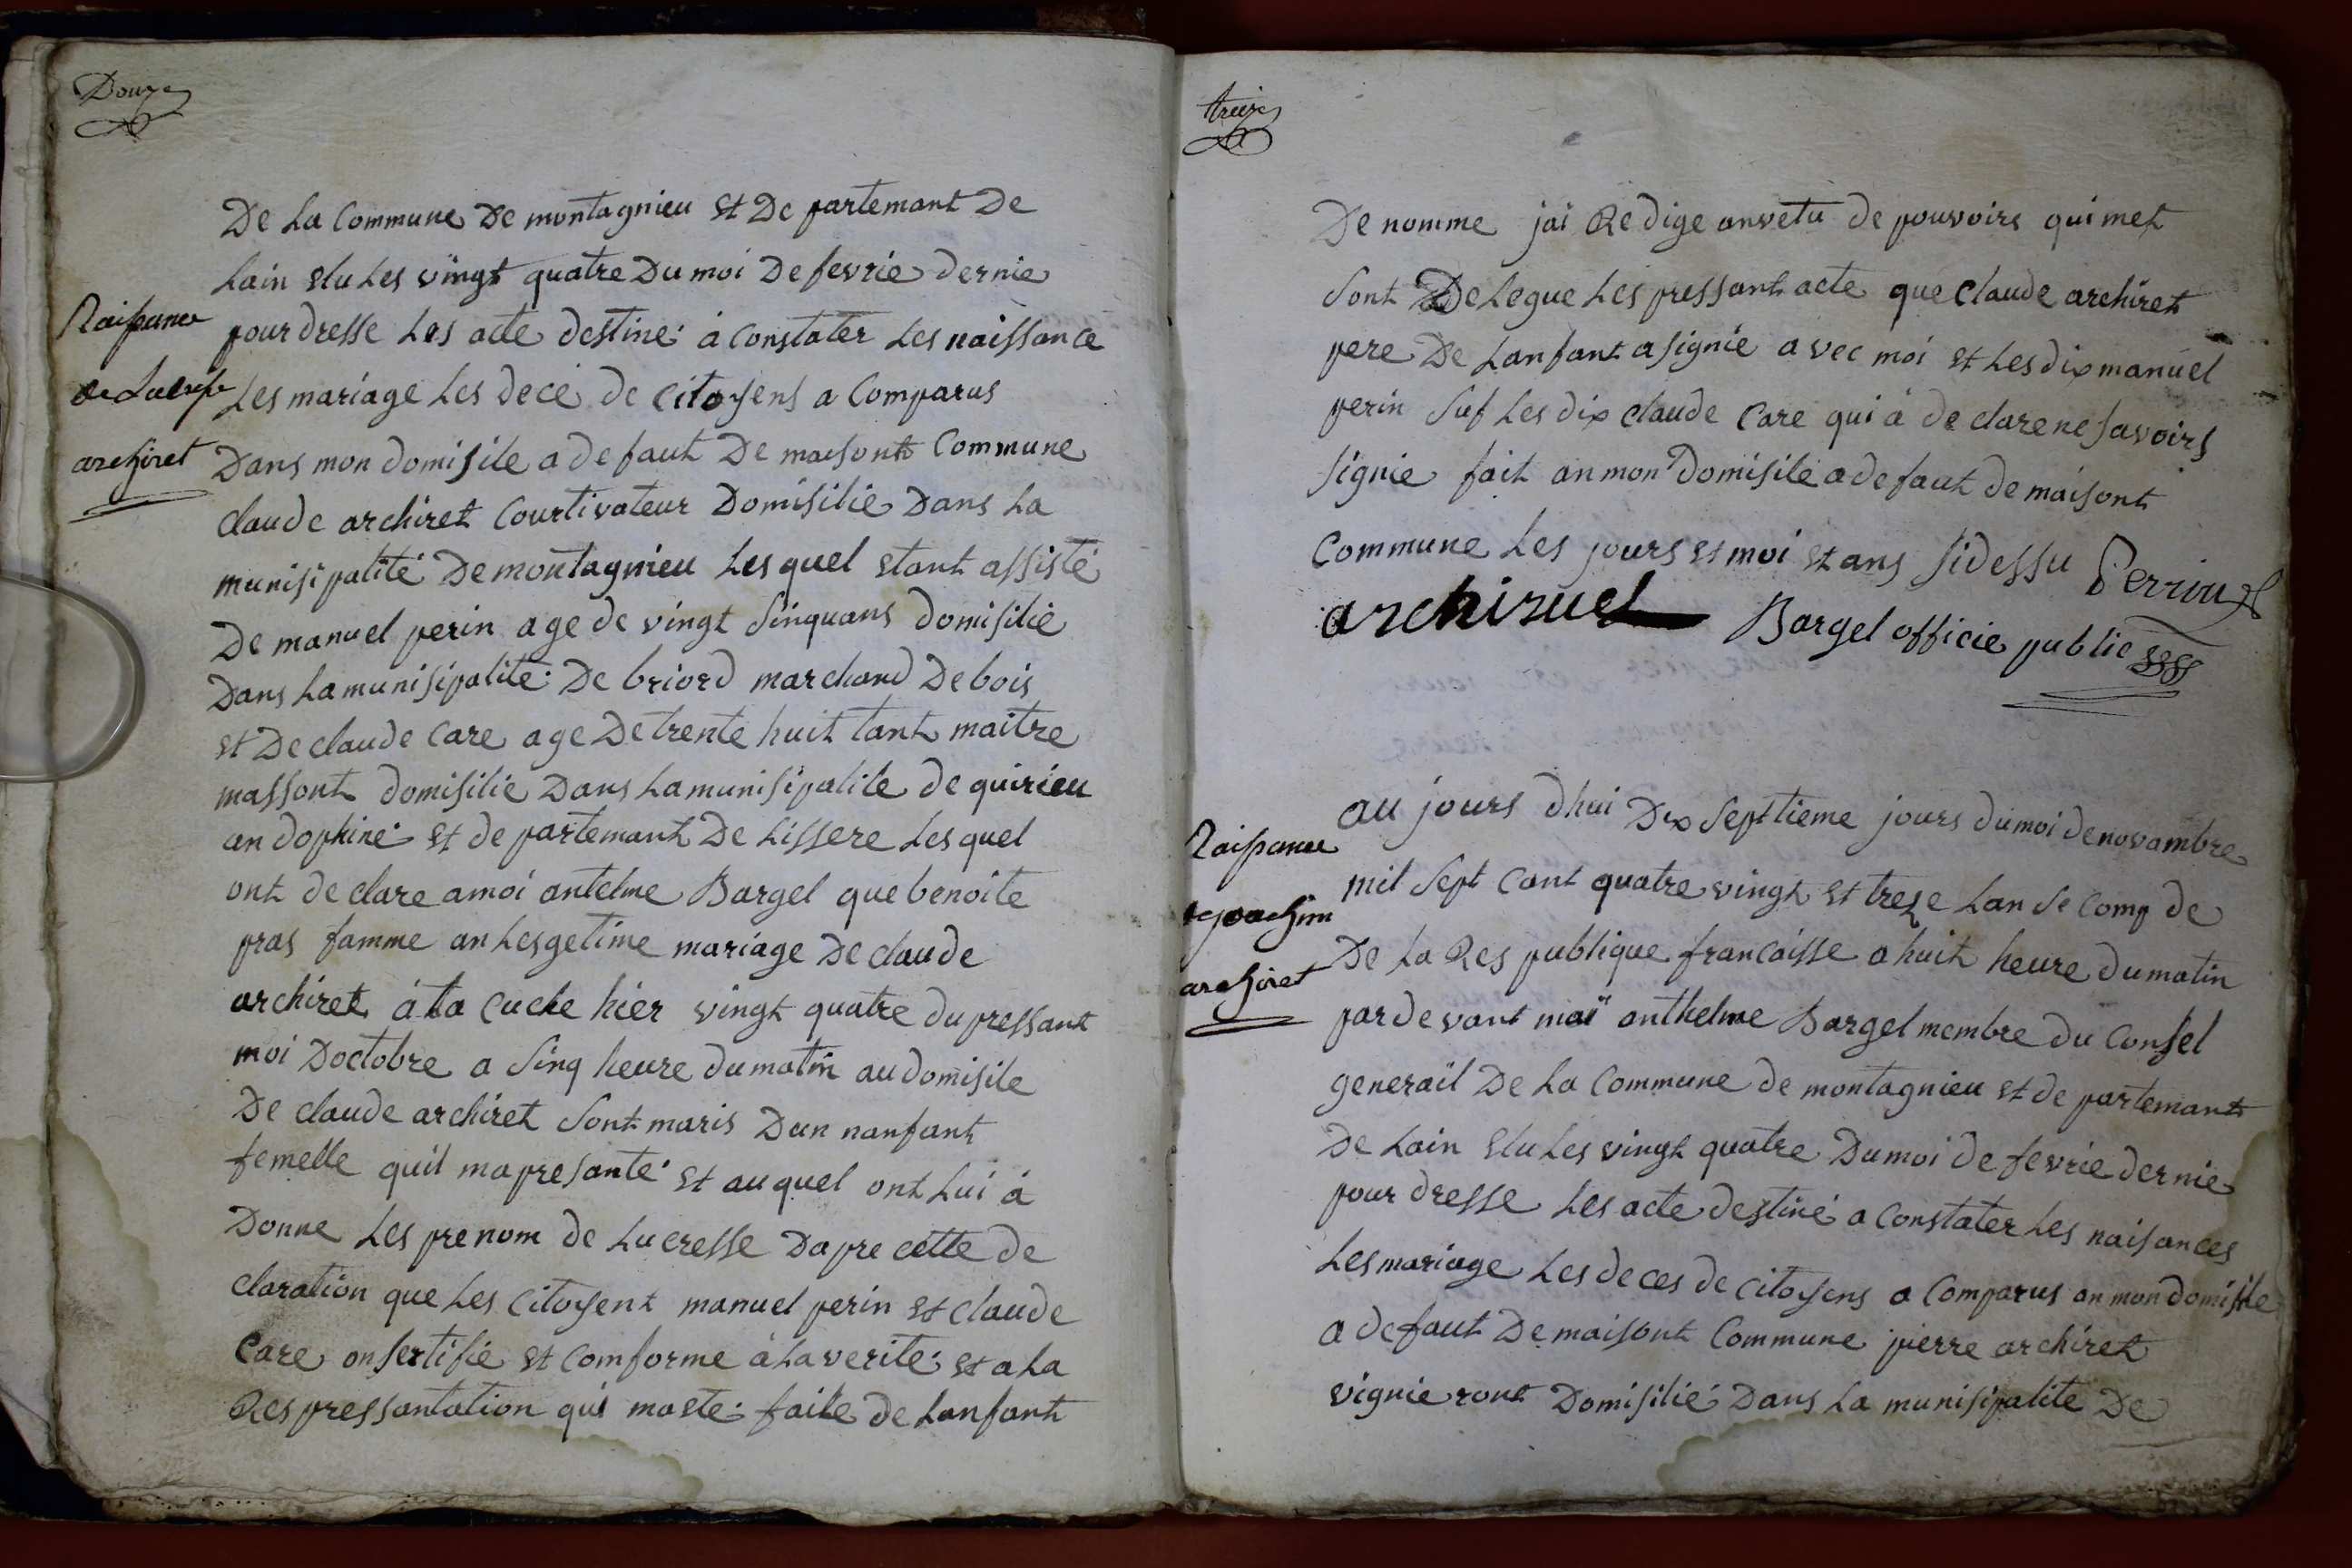 Douze
De La Commune De montagnieu et De partemant De
Lain elu Les vingt quatre Du moi De fevrie dernie
pour dresse Les acte destine à Constater Les naissance
Les mariage Les decé de Citoyens a Comparus
Dans mon domisile a defaut De maisont Commune
claude archiret Courtivateur Domisilie Dans La
munisipalité De montagnieu Les quel etant assisté
De manuel perin age de vingt sinquans domisilie
Dans La munisipalité De briord marchand De bois
et De claude Care age De trente huit tant maitre
massont domisilie Dans La munisipalite de quirieu
an dophiné et de partemant De Lissere Les quel
ont de clare a moi antelme Bargel que benoite
pras famme an Lesgetime mariage De claude
archiret à ta cuche hier vingt quatre du pressant
moi Doctobre a sinq heure du matin au domisile
De claude archiret sont maris Dun nanfant
femelle quil ma presanté et au quel ont Lui à
Donne Les prenom de Lucresse Dapre cette de
claration que Les Citoyent manuel perin et claude
Care on sertifie et Comforme à La verité et a La
Respressantation qui maste faite de Lanfant
Naissance
de Lucresse
archiret
treize
De nomme jai Redige anvetu de pouvoirs qui met
sont DeLegue Les pressant acte que claude archiret
pere De Lanfant a signie avec moi et Les dix manuel
perin suf Les dix claude Care qui à de clare ne savoirs
signie fait an mon Domisile a defaut de maisont
Commune Les jours et moi et ans sidessu Perrin
archiruet Bargel officie public
Naissance
de joachim
archiret
au jours dhui Dix septtieme jours du moi de novambre
mil sept Cant quatre vingt et treze Lan se Comp de
De La Res publique francaisse a huit heure du matin
par devant moi anthelme Bargel membre du Consel
generail De La Commune de montagnieu et de partemant
De Lain elu Les vingt quatre Du moi de fevrie dernie
pour dresse Les acte destiné a Constater Les naisances
Les mariage Les deces de Citoyens a Comparus an mon domisile
a defaut De maisont Commune pierre archiret
vignieront Domisilié Dans La munisipalite De